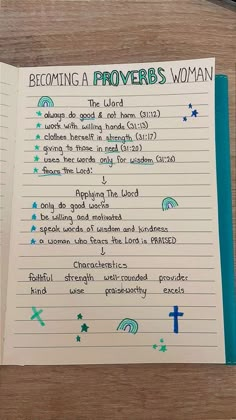 BECOMING A PROVERBS WOMAN
The Word
always do good & not harm (31:12)
work with willing hands (31:13)
clothes herself in strength (31:17)
giving to those in need (31:20)
uses her words only for wisdom (31:26)
fears the Lord:
↓
Applying The Word
only do good works
be willing and motivated
speak words of wisdom and kindness
a woman who fears the Lord is PRAISED
↓
Characteristics
faithful strength well-rounded provider
kind wise praiseworthy excels